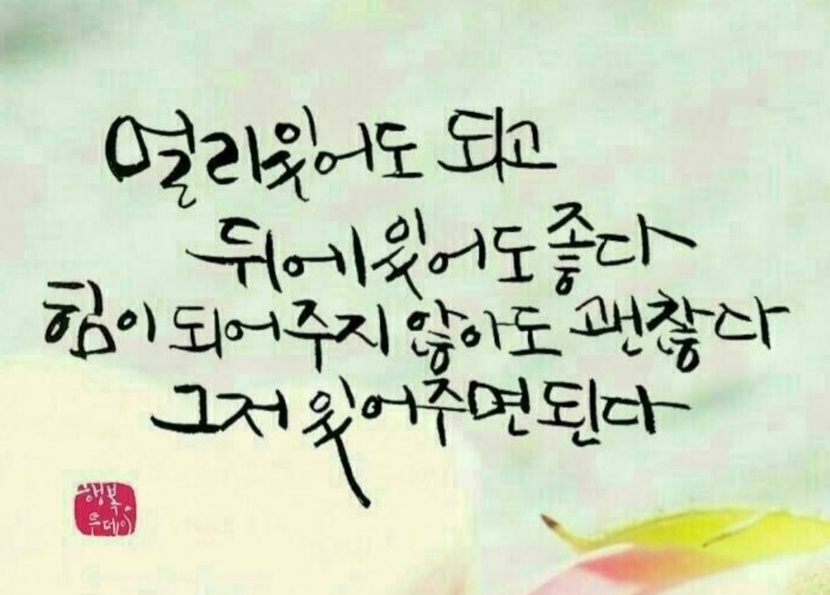 멀리있어도 되고
뒤에있어도 좋다
힘이 되어주지 않아도 괜찮다
그저 있어주면 된다
행복.
투데이